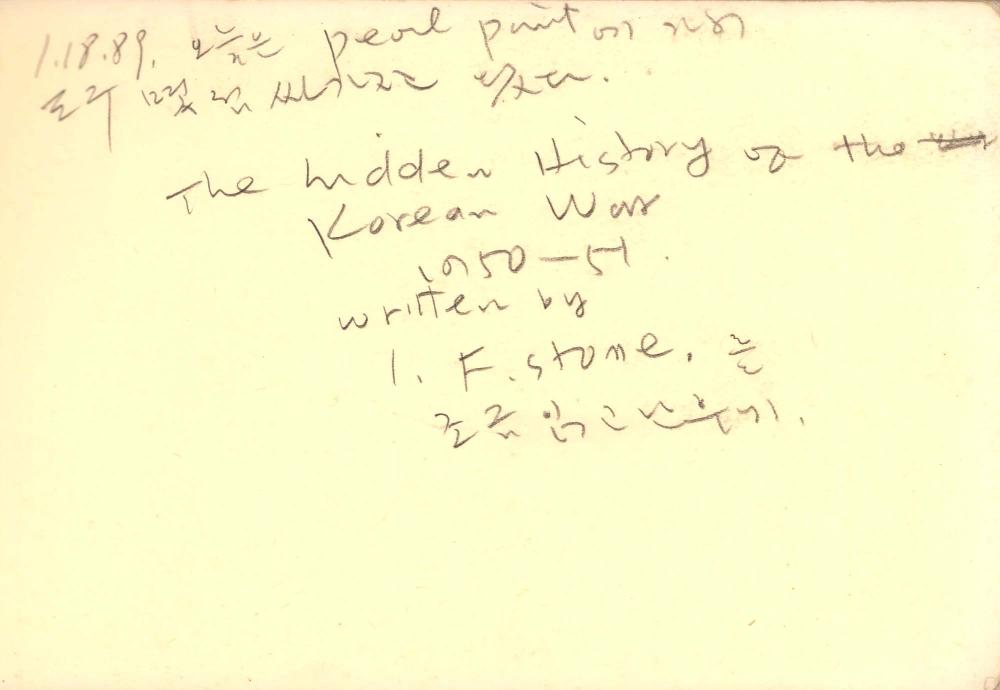 1.18.89. 오늘은 pearl paint에 가서
몇 왔다.
The hidden History of the
Korean War
1950-51.
written by
I. F. Stone. 를
조금 읽고 난 후에.